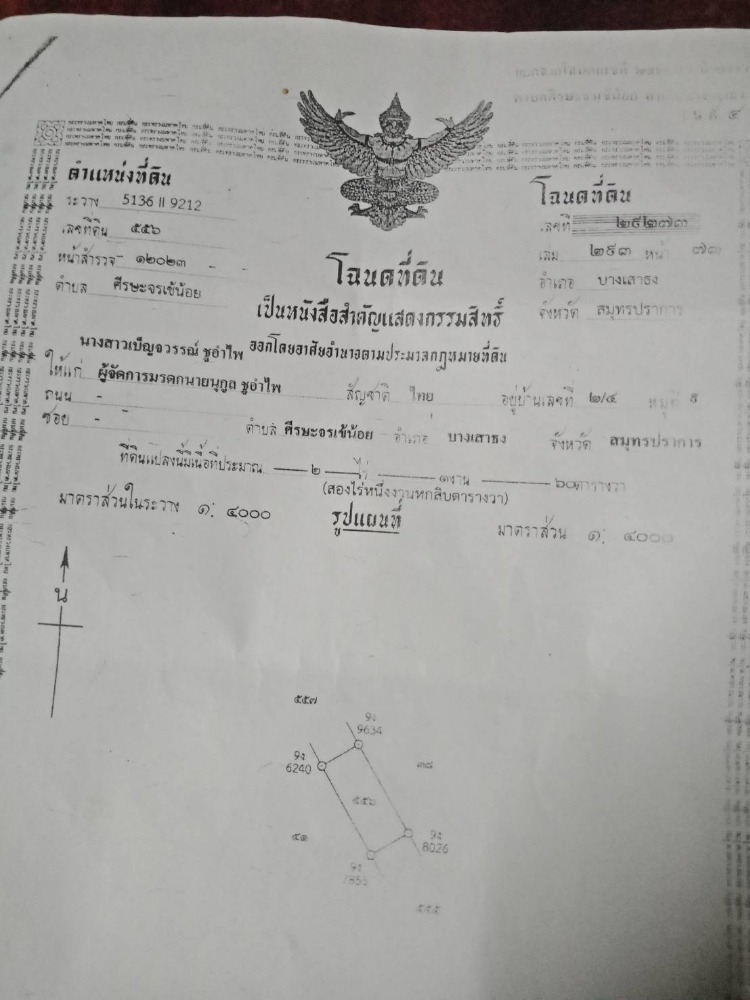 ตำแหน่งที่ดิน
ระวาง 5136 II 9212
เลขที่ดิน ๕๕๖
หน้าสำรวจ ๑๒๐๒๓
ตำบล ศีรษะจรเข้น้อย
โฉนดที่ดิน
เลขที่ ๒๙๒๗๓
เล่ม ๒๙๓ หน้า ๗๓
อำเภอ บางเสาธง
จังหวัด สมุทรปราการ
โฉนดที่ดิน
เป็นหนังสือสำคัญแสดงกรรมสิทธิ์
ออกโดยอาศัยอำนาจตามประมวลกฎหมายที่ดิน
นางสาวเบ็ญจวรรณ์ ชูอำไพ
ให้แก่ ผู้จัดการมรดกนายนุกูล ชูอำไพ สัญชาติ ไทย อยู่บ้านเลขที่ ๒/๔ หมู่ที่
ถนน -
ซอย - ตำบล ศีรษะจรเข้น้อย อำเภอ บางเสาธง จังหวัด สมุทรปราการ
ที่ดินแปลงนี้มีเนื้อที่ประมาณ ๒ ไร่ ๑ งาน ๖๐ ตารางวา
(สองไร่หนึ่งงานหกสิบตารางวา)
มาตราส่วนในระวาง ๑: ๔๐๐๐
รูปแผนที่
มาตราส่วน ๑: ๔๐๐๐
น
๕๕๗
9ง
9634
9ง
6240
๓๘
๕๕๖
๕๑
9ง
8026
9ง
๕๕๕